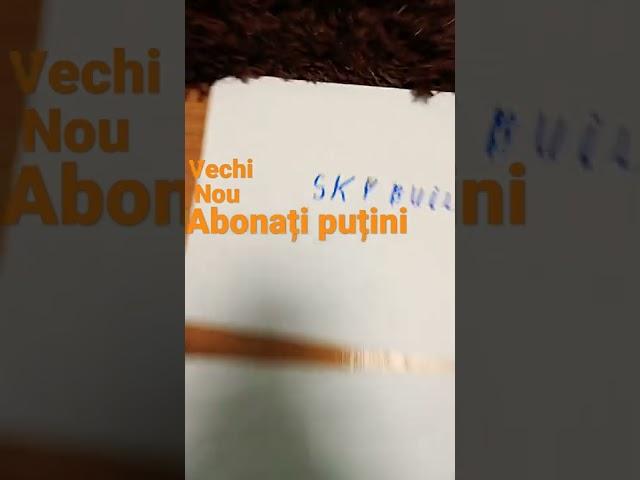 Vechi
Nou
Abonați puțini
SKP